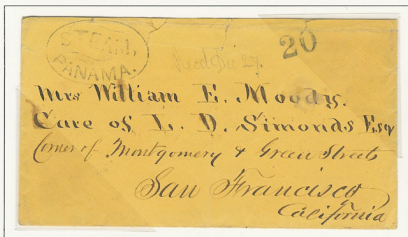 STEAM,
PANAMA.
20
Mrs William E. Moody.
Care of L. D. Simonds Esq
Corner of Montgomery & Green Streets
San Francisco
California